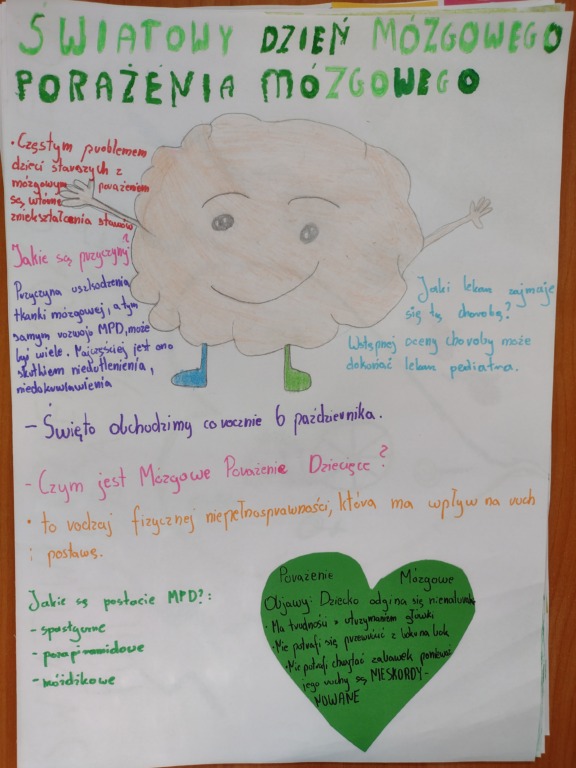 ŚWIATOWY DZIEŃ MÓZGOWEGO
PORAŻENIA MÓZGOWEGO
• Częstym problemem
dzieci starszych z
mózgowym porażeniem
są wtórne
zniekształcenia stawów
Jakie są przyczyny?
Przyczyna uszkodzenia
tkanki mózgowej, a tym
samym rozwoju MPD, może
być wiele. Najczęściej jest ono
skutkiem niedotlenienia,
niedokrwawienia
Jaki lekarz zajmuje
się tą chorobą?
Wstępnej oceny choroby może
dokonać lekarz pediatra.
- Święto obchodzimy corocznie 6 października.
- Czym jest Mózgowe Porażenie Dziecięce?
• to rodzaj fizycznej niepełnosprawności, która ma wpływ na ruch
i postawę.
Jakie są postacie MPD?:
- spastyczne
- pozapiramidowe
- móżdżkowe
Porażenie Mózgowe
Objawy: Dziecko odgina się nienaturalnie
• Ma trudności z utrzymaniem główki
• Nie potrafi się przewrócić z boku na bok
• Nie potrafi chwytać zabawek ponieważ
jego ruchy są NIESKORDY-
NOWANE